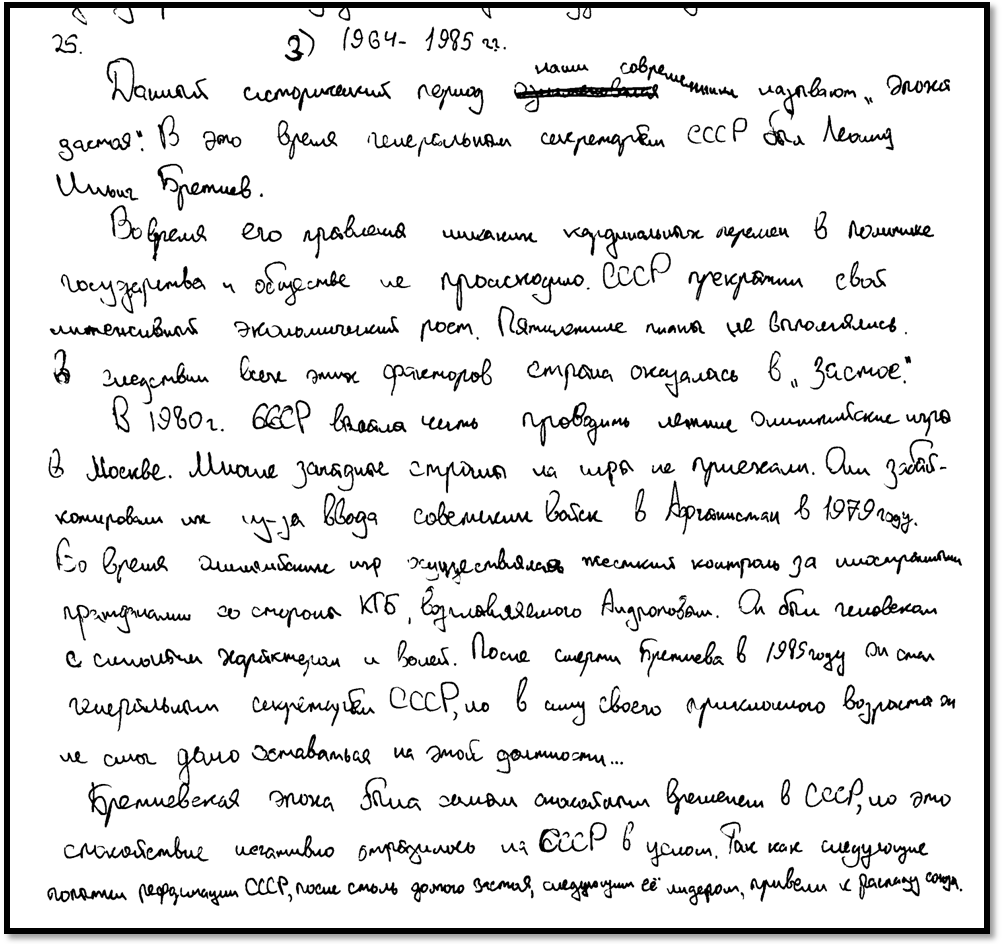 25. 3) 1964- 1985 гг.
Данный исторический период наши современники называют „Эпоха
застоя". В это время генеральным секретарём СССР был Леонид
Ильич Брежнев.
Во время его правления никаких кардинальных перемен в политике
государства и обществе не происходило. СССР прекратил свой
интенсивный экономический рост. Пятилетние планы не выполнялись.
В следствии всех этих факторов страна оказалась в „Застое".
В 1980г. СССР выпала честь проводить летние Олимпийские игры
в Москве. Многие западные страны на игры не приехали. Они забой-
котировали их из-за ввода советских войск в Афганистан в 1979 году.
Во время Олимпийских игр осуществлялся жесткий контроль за иностранными
гражданами со стороны КГБ, возглавляемого Андроповым. Он был человеком
с сильным характером и волей. После смерти Брежнева в 1985 году он стал
генеральным секретарём СССР, но в силу своего преклонного возраста он
не смог долго оставаться на этой должности...
Брежневская эпоха была самым спокойным временем в СССР, но это
спокойствие негативно отразилось на СССР в целом. Так как следующие
попытки реформации СССР, после столь долгого застоя, следующим её лидером, привели к распаду союза.